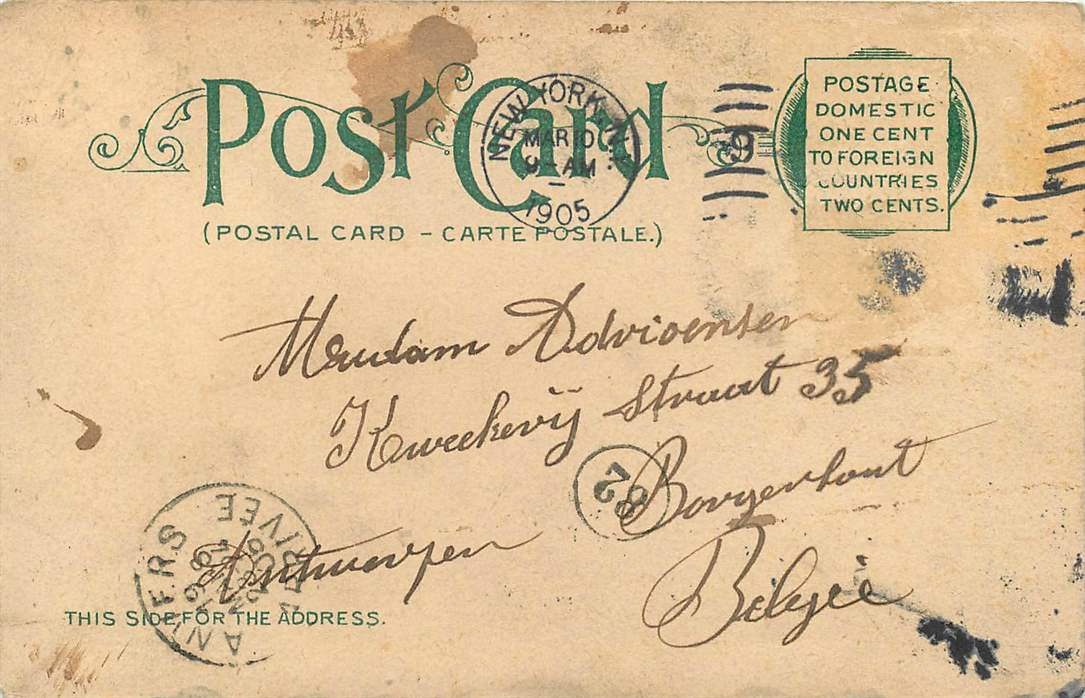 Post Card
(POSTAL CARD – CARTE POSTALE.)
NEW YORK, N.Y.
MAR 10
AM
1905
9
POSTAGE
DOMESTIC
ONE CENT
TO FOREIGN
COUNTRIES
TWO CENTS.
Madam Advioensen
Kweekerij Straat 35
Borgerhout
Antwerpen
België
28
ANVERS
ARRIVÉE
THIS SIDE FOR THE ADDRESS.